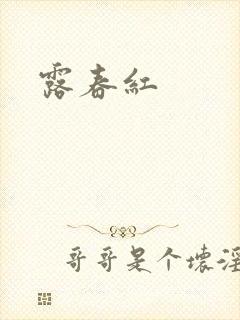 露春紅
哥哥是个壞淫